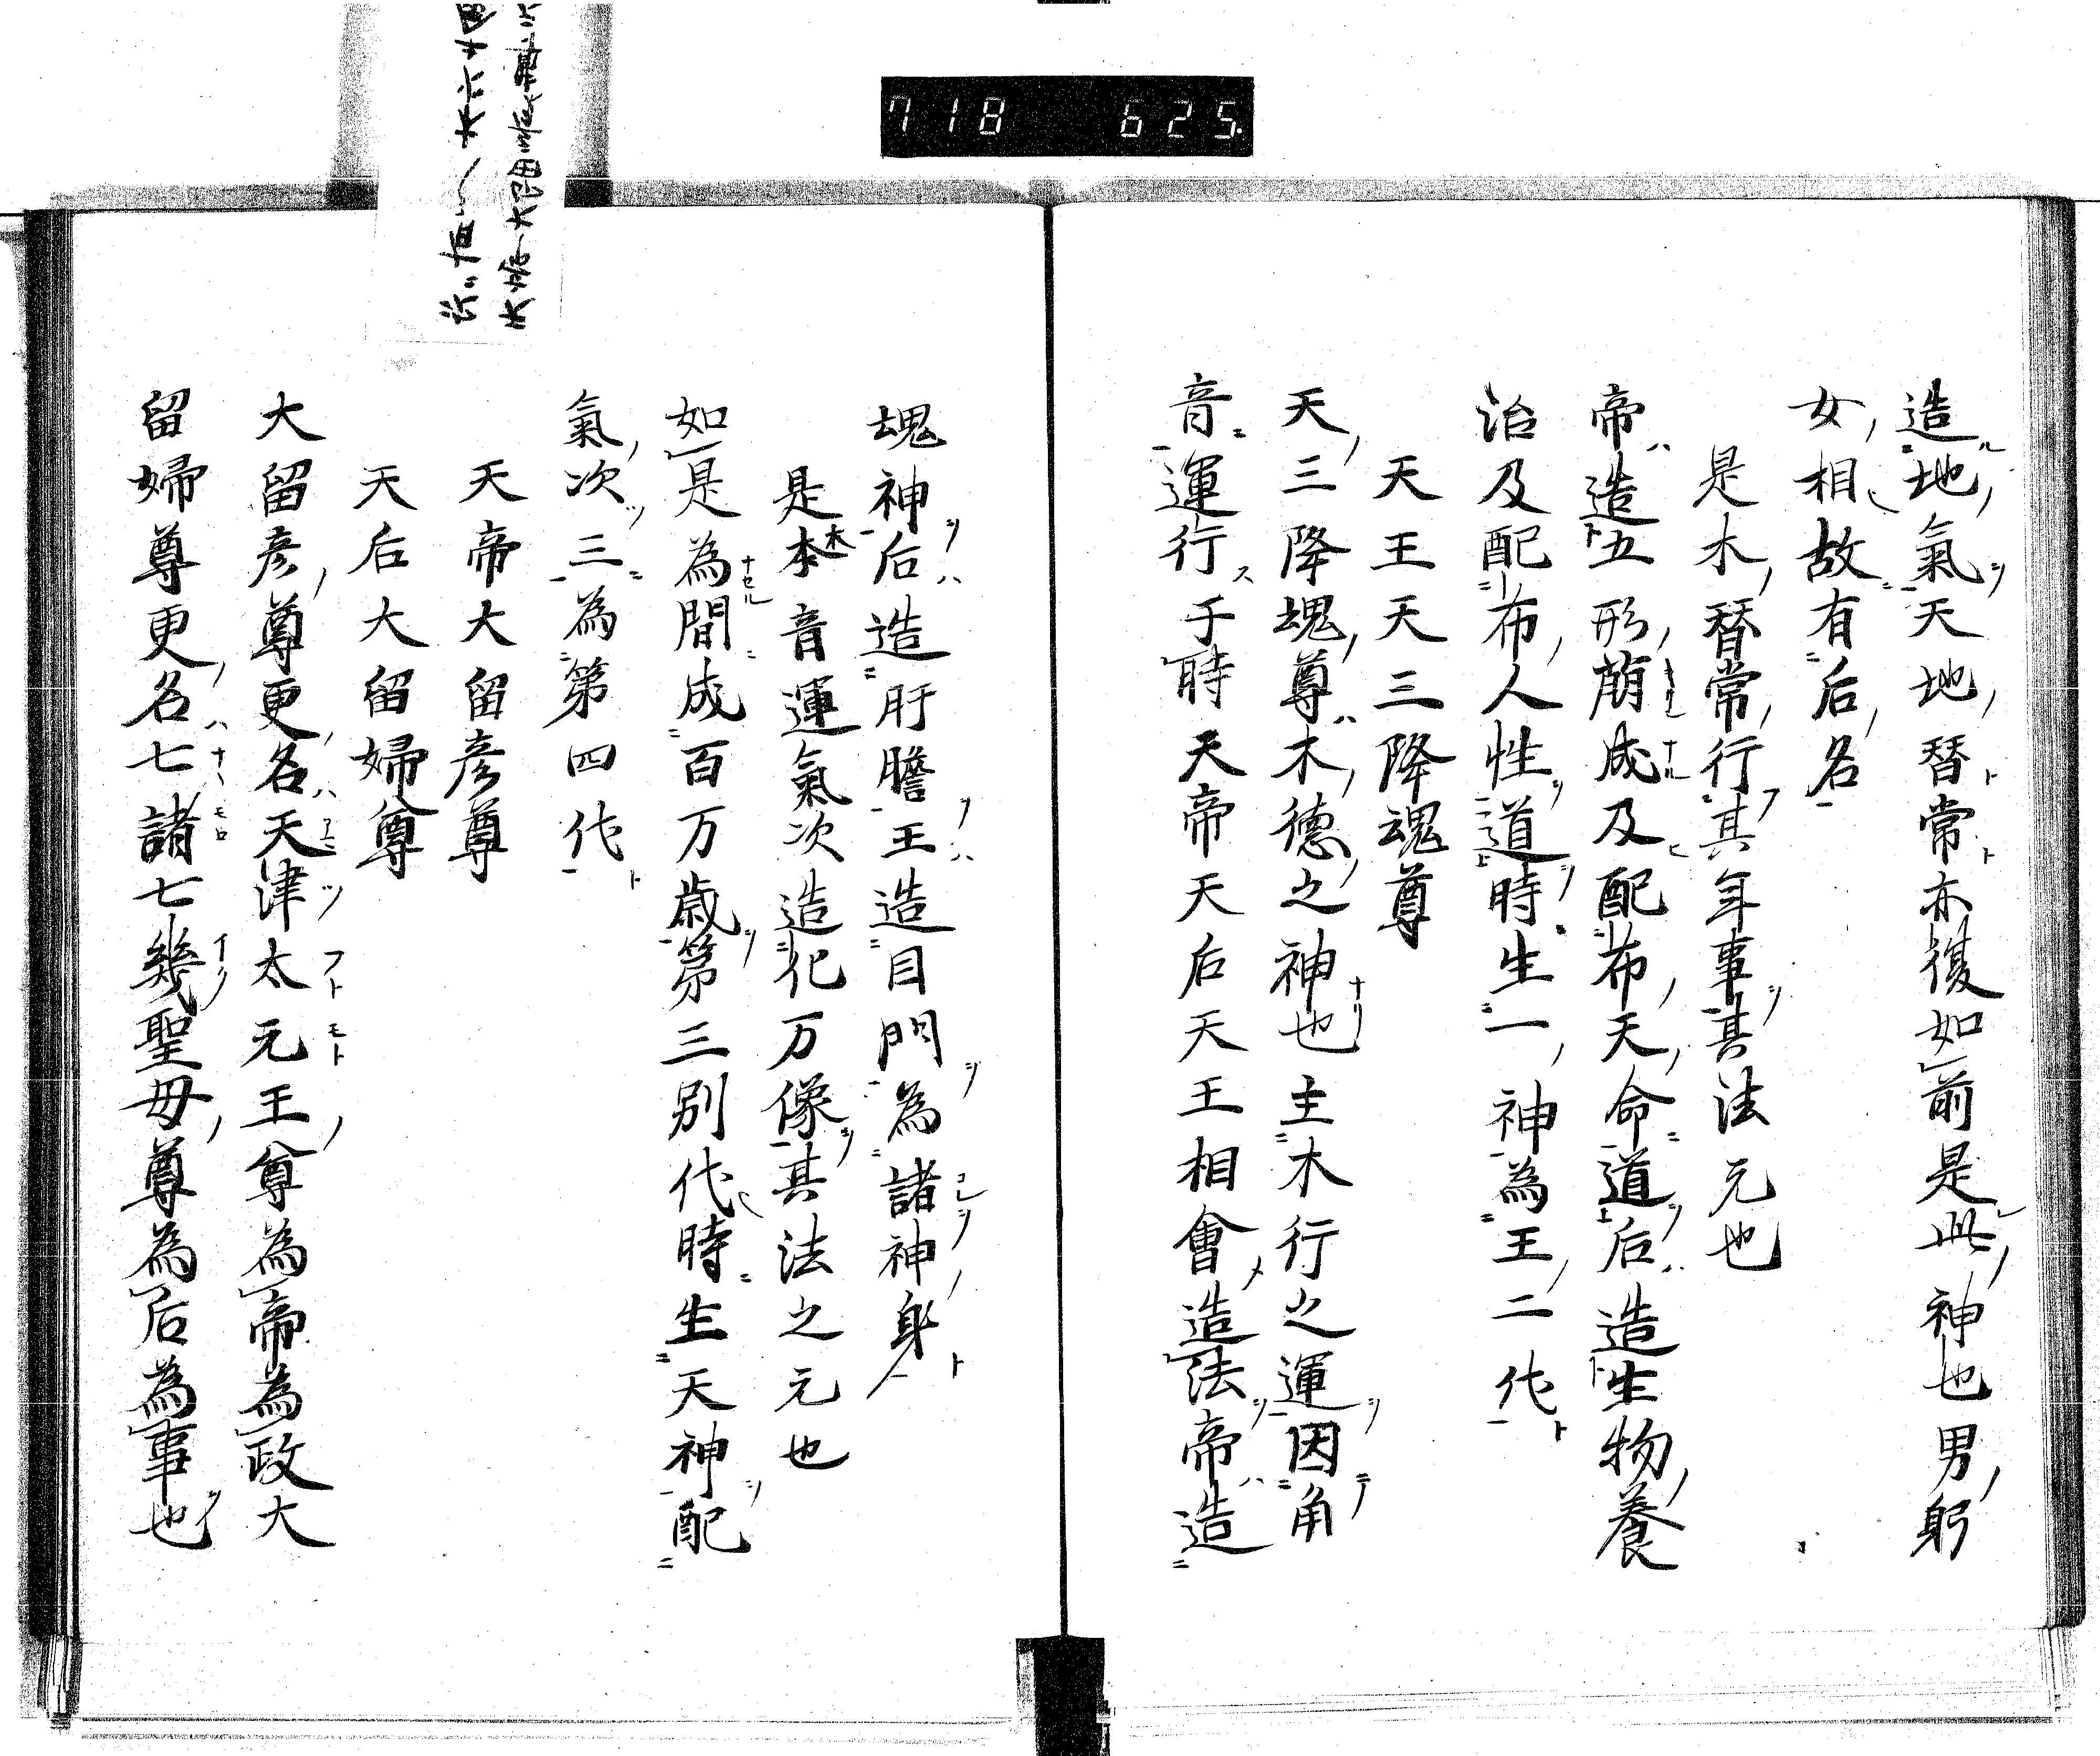 718 625
造地氣天地替常亦復如前是此神也男躬
女相故有后名
是木替常行其年事其法元也
帝造五形萠成及配布天命道后造生物養
治及配布人性道時生一神為王二代
天王天三降魂尊
天三降魂尊木德之神也主木行之運因角
音運行于時天帝天后天王相會造法帝造
魂神后造肝膽王造目門為諸神身
是本木音運氣次造化万像其法之元也
如是為間成百万歳第三別代時生天神配
氣次三為第四代
天帝大留彦尊
天后大留婦尊
大留彦尊更名天津太元王尊為帝為政大
留婦尊更名七諸七幾聖母尊為后為事也